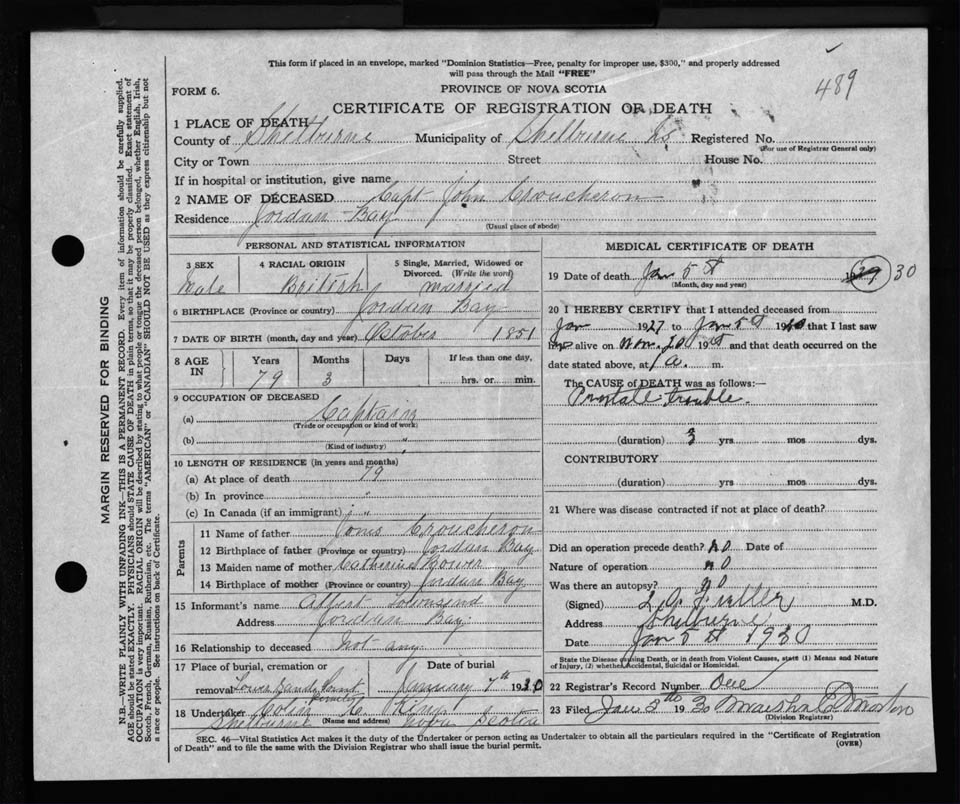 489
This form if placed in an envelope, marked "Dominion Statistics—Free, penalty for improper use, $300," and properly addressed
will pass through the Mail "FREE"
FORM 6.
PROVINCE OF NOVA SCOTIA
CERTIFICATE OF REGISTRATION OF DEATH
1 PLACE OF DEATH
County of Shelburne Municipality of Shelburne Registered No.
(For use of Registrar General only)
City or Town Street House No.
If in hospital or institution, give name
2 NAME OF DECEASED Capt John Croucheron
Residence Jordan Bay
(Usual place of abode)
PERSONAL AND STATISTICAL INFORMATION
3 SEX 4 RACIAL ORIGIN 5 Single, Married, Widowed or
Divorced. (Write the word)
Male British married
6 BIRTHPLACE (Province or country) Jordan Bay
7 DATE OF BIRTH (month, day and year) October 1851
8 AGE IN Years Months Days If less than one day,
79 3 hrs. or min.
9 OCCUPATION OF DECEASED
(a) Captain
(Trade or occupation or kind of work)
(b) "
(Kind of industry)
10 LENGTH OF RESIDENCE (in years and months)
(a) At place of death 79
(b) In province "
(c) In Canada (if an immigrant) "
Parents
11 Name of father Croucheron
12 Birthplace of father (Province or country) Jordan Bay
13 Maiden name of mother Catherine Bower
14 Birthplace of mother (Province or country) Jordan Bay
15 Informant's name Albert Townsend
Address Jordan Bay
16 Relationship to deceased Not any
17 Place of burial, cremation or Date of burial
removal Lower Sandy Point January 7th 1930
18 Undertaker Colin King
Shelburne (Name and address) Nova Scotia
MEDICAL CERTIFICATE OF DEATH
19 Date of death Jan 5th 1929 30
(Month, day and year)
20 I HEREBY CERTIFY that I attended deceased from
Jan 1927 to Jan 5th 1930 that I last saw
him alive on Nov. 20 19 and that death occurred on
date stated above, at 1 a. m.
The CAUSE of DEATH was as follows:—
Prostate trouble.
(duration) 3 yrs. mos. dys.
CONTRIBUTORY
(duration) yrs. mos. dys.
21 Where was disease contracted if not at place of death?
Did an operation precede death? no Date of
Nature of operation no
Was there an autopsy? no
(Signed) L. O. Fuller M.D.
Address Shelburne
Date Jan 5th 1930
State the Disease causing Death, or in death from Violent Causes, state (1) Means and Nature
of Injury, (2) whether Accidental, Suicidal or Homicidal.
22 Registrar's Record Number One
23 Filed Jan 5th 1930
(Division Registrar)
SEC. 46—Vital Statistics Act makes it the duty of the Undertaker or person acting as Undertaker to obtain all the particulars required in the "Certificate of Registration
of Death" and to file the same with the Division Registrar who shall issue the burial permit.
(OVER)
MARGIN RESERVED FOR BINDING
N.B.—WRITE PLAINLY WITH UNFADING INK—THIS IS A PERMANENT RECORD. Every item of information should be carefully supplied.
AGE should be stated EXACTLY. PHYSICIANS should STATE CAUSE OF DEATH in plain terms, so that it may be properly classified. Exact statement of
OCCUPATION is very important. RACIAL ORIGIN will be described by stating to what people or tongue the deceased person belonged, whether English, Irish,
Scotch, French, German, Russian, Ruthenian, etc. The terms "AMERICAN" or "CANADIAN" SHOULD NOT BE USED as they express citizenship but not
a race or people. See instructions on back of Certificate.